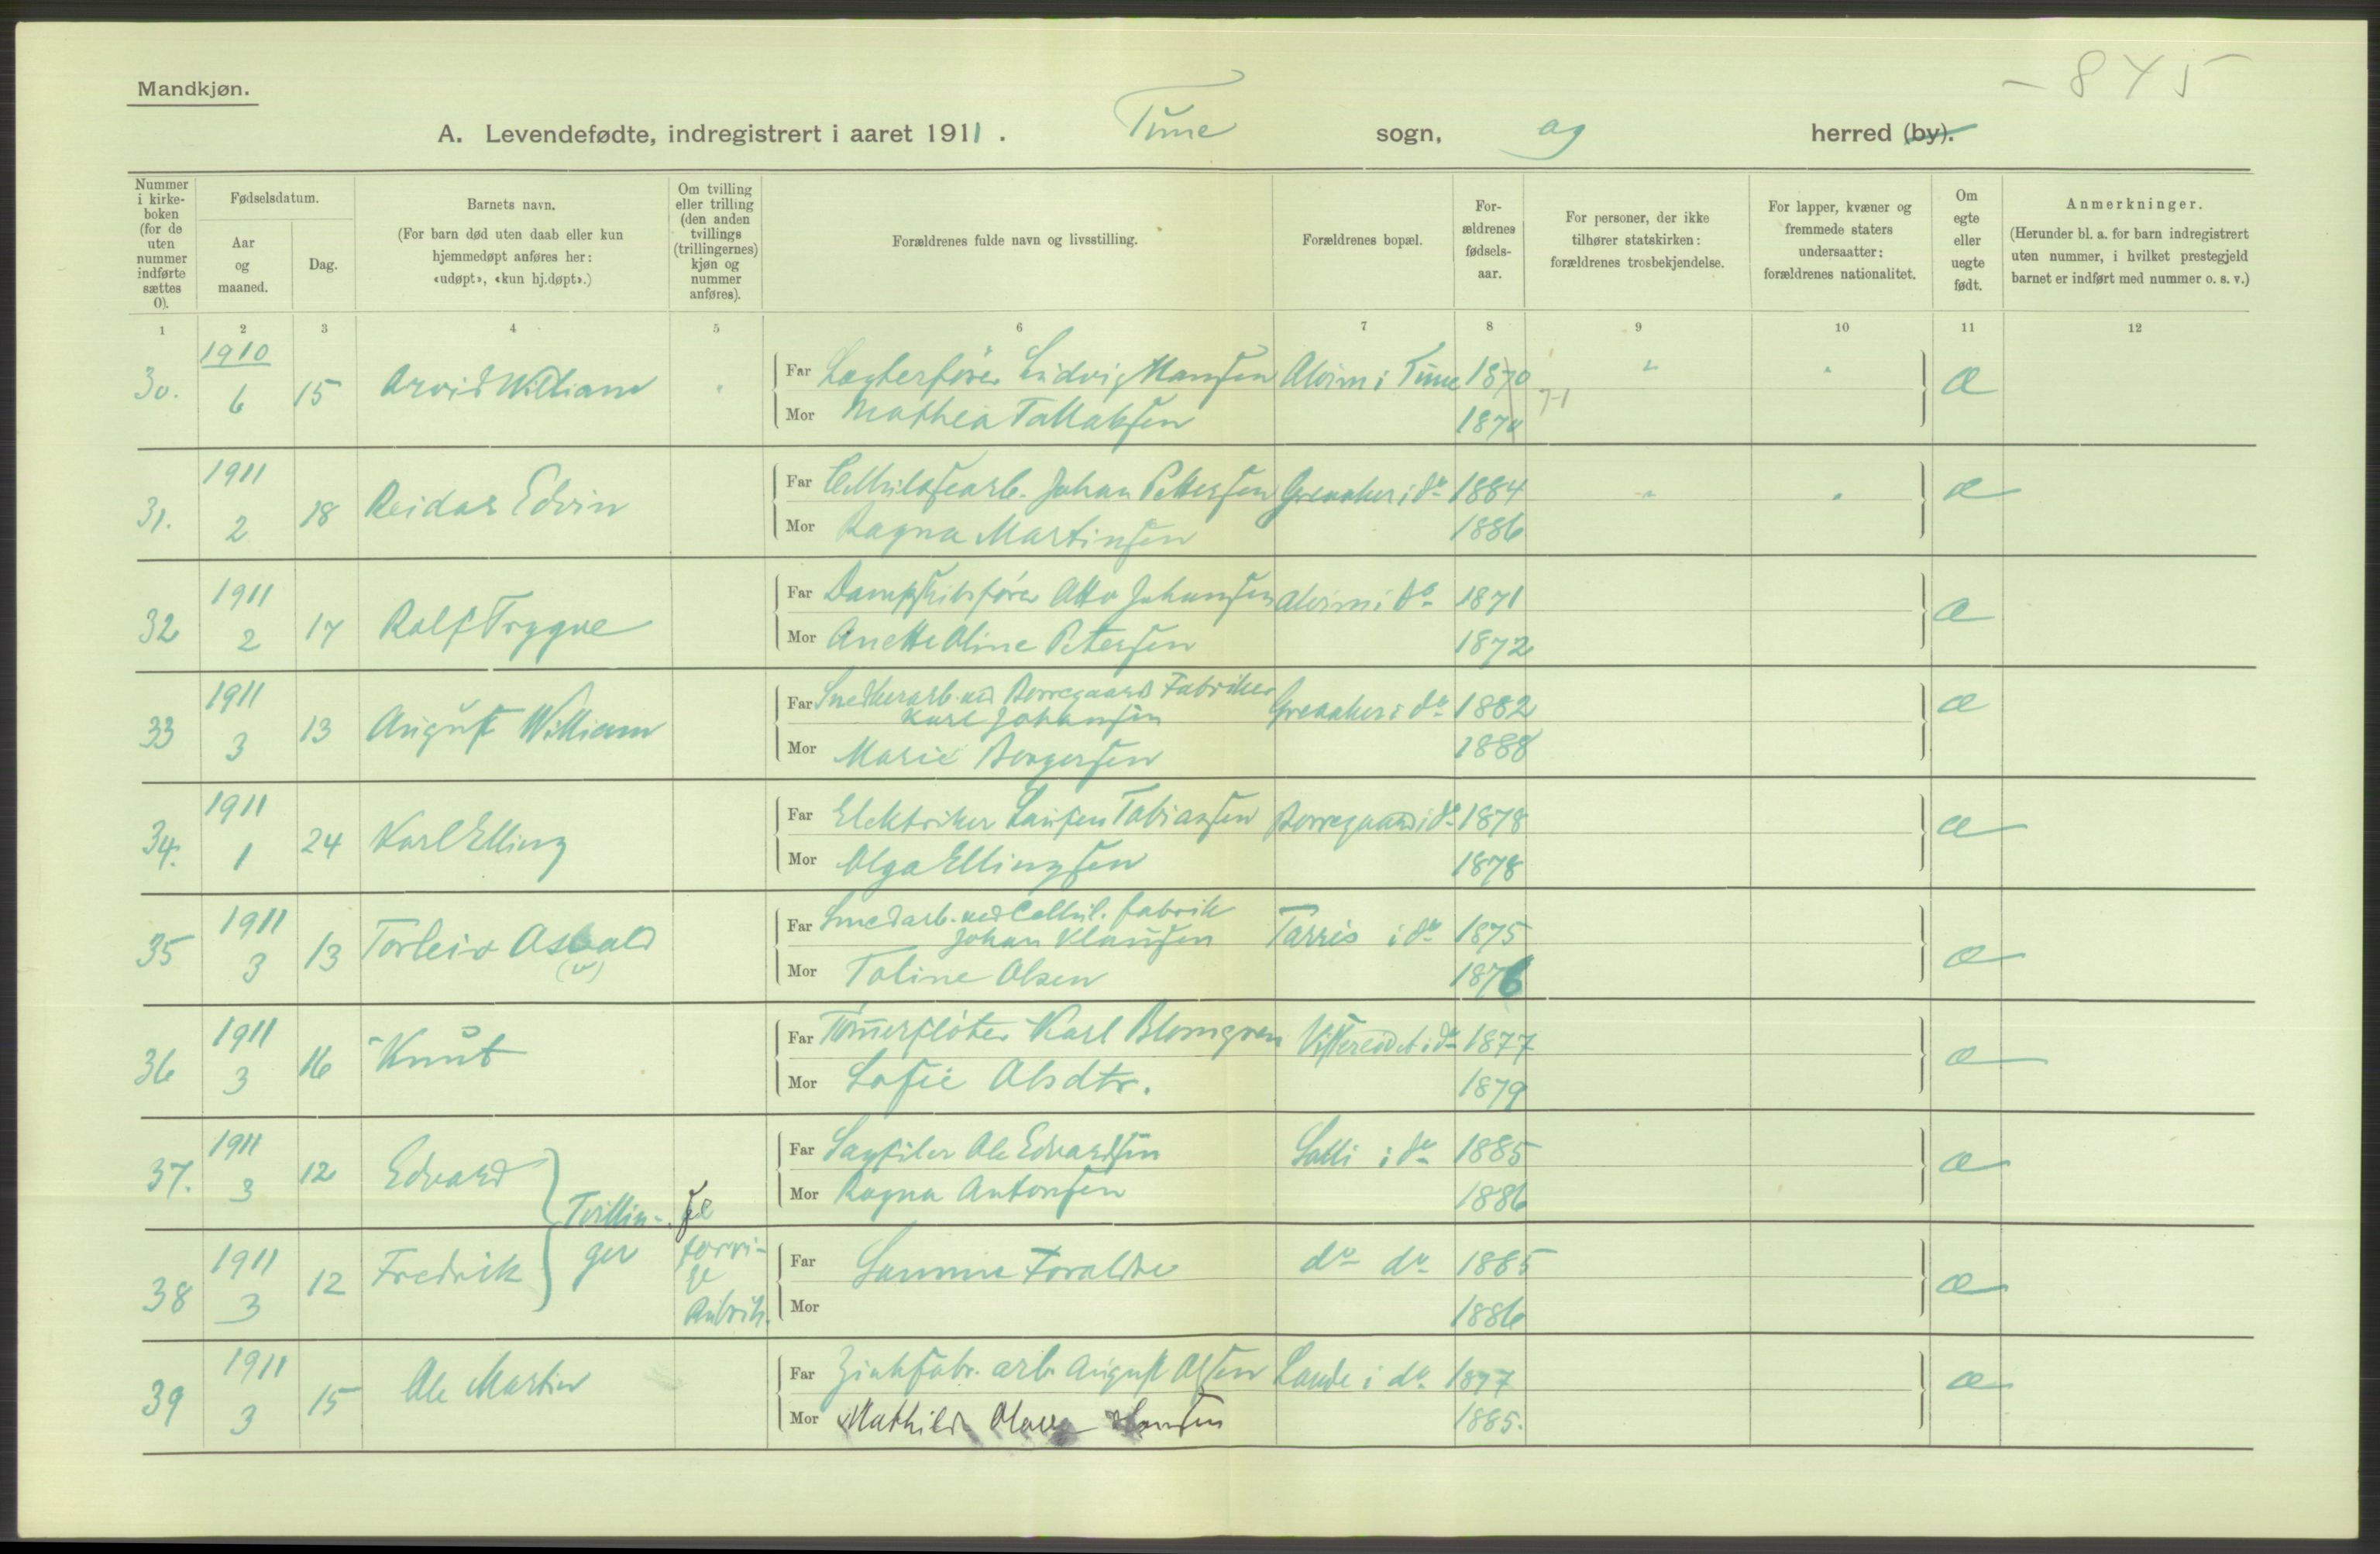 - 845
Mandkjøn.
A. Levendefødte, indregistrert i aaret 1911. Tune sogn, og herred (by).
Nummer i kirke-boken (for de uten nummer indførte sættes 0).
Fødselsdatum.
Aar og maaned.
Dag.
Barnets navn.
(For barn død uten daab eller kun hjemmedøpt anføres her: «udøpt», «kun hj.døpt».)
Om tvilling eller trilling (den anden tvillings (trillingernes) kjøn og nummer anføres).
Forældrenes fulde navn og livsstilling.
Forældrenes bopæl.
For-ældrenes fødsels-aar.
For personer, der ikke tilhører statskirken: forældrenes trosbekjendelse.
For lapper, kvæner og fremmede staters undersaatter: forældrenes nationalitet.
Om egte eller uegte født.
Anmerkninger.
(Herunder bl. a. for barn indregistrert uten nummer, i hvilket prestegjeld barnet er indført med nummer o. s. v.)
1 2 3 4 5 6 7 8 9 10 11 12
30. 1910 6 15 Arvid William " Far Lægterfører Ludvig Hansen Alvim i Tune 1870 " " æ
Mor Mathea Tallaksen 1870 71
31. 1911 2 18 Reidar Edvin Far Cellulosearb. Johan Pettersen Greaaker i do 1884 " " æ
Mor Ragna Martinsen 1886
32 1911 2 17 Ralf Trygve Far Dampskibsfører Otto Johansen Alvim i do 1871 æ
Mor Anette Oline Petersen 1872
33 1911 3 13 August William Far Snedkerarb. ved Borregaards Fabriker
Karl Johansen Greaaker i do 1882 æ
Mor Marie Borgersen 1888
34. 1911 1 24 Karl Elling Far Elektriker Laurtz Tobiassen Borregaard i do 1878 æ
Mor Olga Ellingsen 1878
35 1911 3 13 Torleiv Asvald (v) Far Smedarb. ved Cellul. fabrik
Johan Klausen Tarris i do 1875 æ
Mor Toline Olsen 1876
36 1911 3 16 Knut Far Tømmerfløter Karl Blomgren i do 1877 æ
Mor Sofie Olsdtr. 1879
37. 1911 3 12 Edvard Far Sagfiler Ole Edvardsen Solli i do 1885 æ
Mor Ragna Antonsen 1886
Tvillin- Se
ger forri-
ge
Rubrik.
38 1911 3 12 Fredrik Far Samme Foraldre do do 1885 æ
Mor 1886
39 1911 3 15 Ole Martin Far Zinkfabr. arb. August Olsen Lande i do. 1877 æ
Mor Mathilde Olava Hansen 1885.